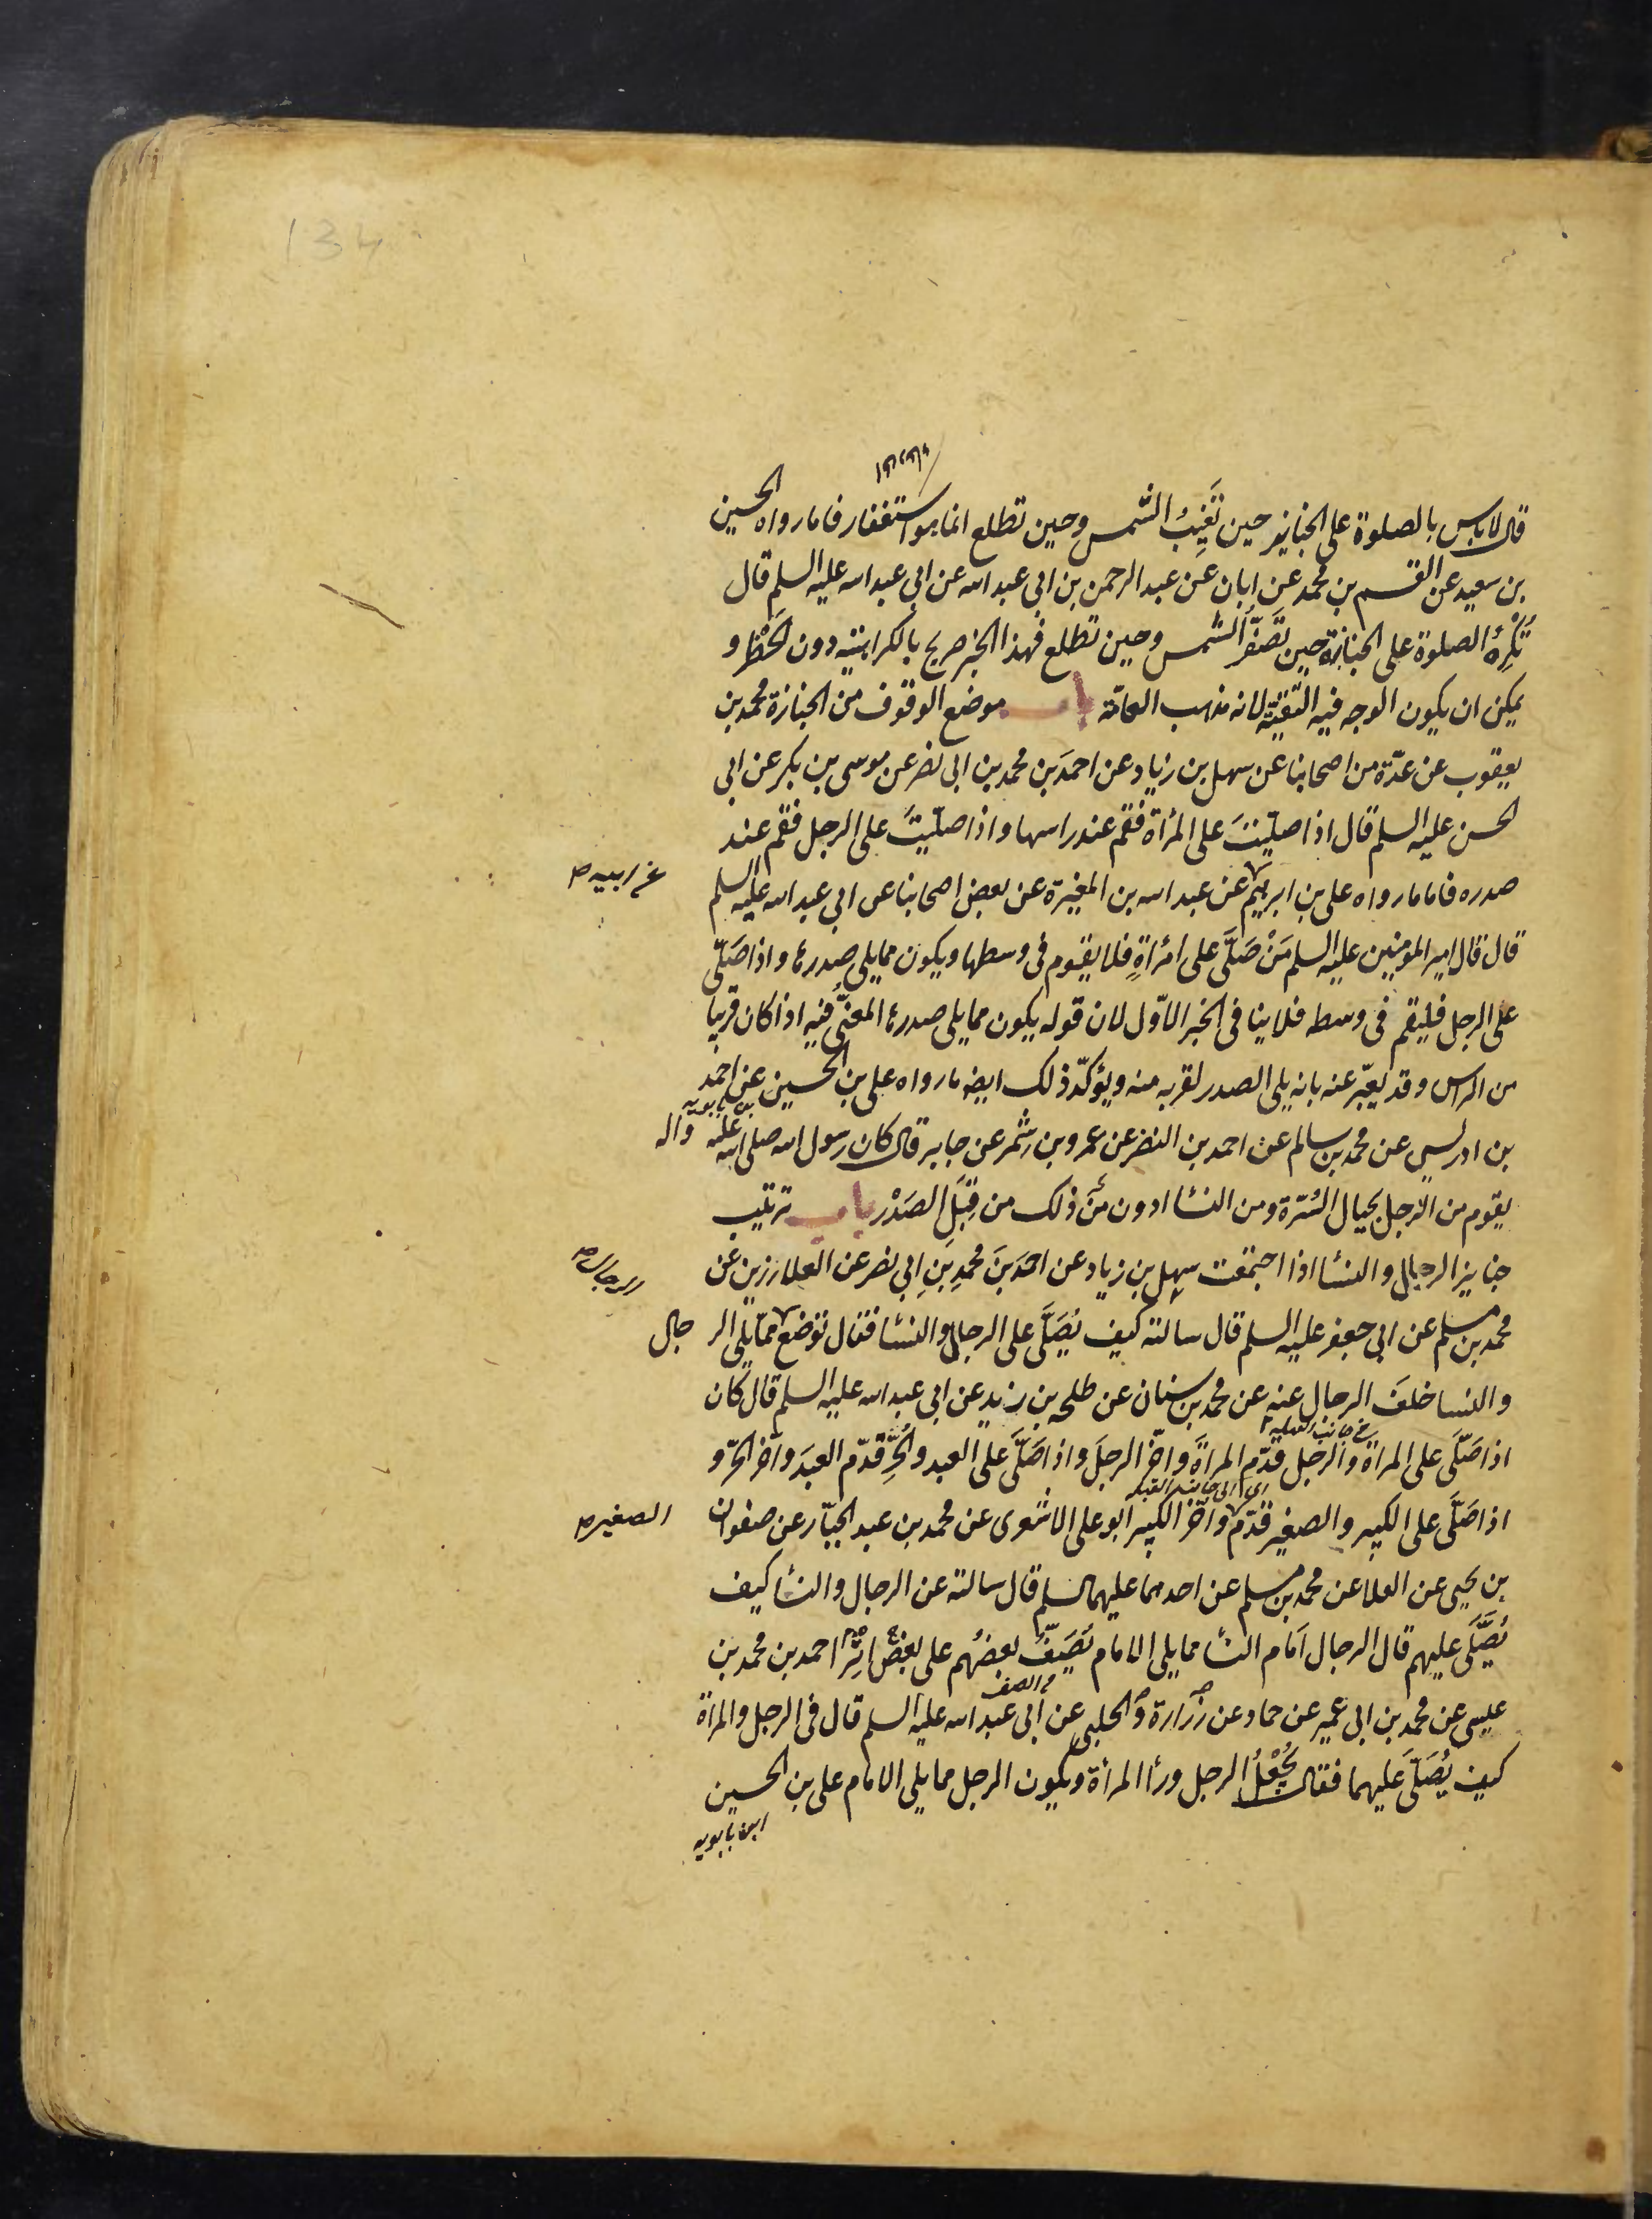 134
قال لا باس بالصلوة على الجنايز حين تَغِيبُ الشمس وحين تطلع انما هو استغفار فاما رواه الحسين
بن سعيد عن القسم بن محمد عن ابان عن عبد الرحمن بن ابي عبد الله عن ابي عبد الله عليه السلم قال
تُكرَهُ الصلوة على الجنازة حين تصَفَرُّ الشمس وحين تطلع فهذا الخبر صريح بالكراهية دون الحَظر و
يمكن ان يكون الوجه فيه التّقيّة لانه مذهب العامّة باب موضع الوقوف من الجنازة محمد بن
يعقوب عن عدّة من اصحابنا عن سهل بن زياد عن احمدَ بن محمد بن ابي نصر عن موسى بن بكر عن ابي
الحسن عليه السلم قال اذا صلّيتَ على المرأة فقم عند راسها و اذا صلّيتَ على الرجل فقم عند
صدره فاما ما رواه على بن ابرهيم عن عبد الله بن المغيرة عن بعض اصحابنا عن ابي عبد الله عليه السلم
عن ابيه ص
قال قال امير المومنين عليه السلم مَنْ صَلَّى على امرَاةٍ فلا يقوم في وسطها ويكون مما يلى صدرها و اذا صَلّى
على الرجل فليقم في وسطه فلا ينافى الخبر الاوّل لان قوله يكون مما يلى صدرها المعنّى فيه اذا كان قريبا
من الراس وقد يعبّر عنه بانه يلى الصدر لقربه منه ويؤكّد ذلك ايضا ما رواه على بن الحسين عن احمد
بن بابويه
بن ادريس عن محمد بن سالم عن احمد بن النضر عن عمرو بن شمر عن جابر قال كان رسول الله صلى الله عليه واله
يقوم من الرّجل بحيال السّرّة ومن النسا ادون من ذلك من قِبَلِ الصَدْر باب ترتيب
جنايز الرجال والنسا اذا اجتمعت سهل بن زياد عن احمدَ بنَ محمدِ بنِ ابي نصر عن العلا رزين عن
محمد بن مسلم عن ابي جعفر عليه السلم قال سالته كيف يُصَلَّى على الرجال والنسا فقال توضع مما يلى الرجال
الرجال ص
والنسا خلفَ الرجال عنه عن محمد بن سنان عن طلحه بن زيد عن ابي عبد الله عليه السلم قال كان
اذا صَلّى على المراة والرجل قدّم المراةَ واخّر الرجلَ و اذا صَلَّى على العبد والحُرِّ قدّم العبدَ واخّر الحرّ و
اى الى جانب القبلة
اذا صَلَّى على الكبير والصغير قدّم واخّر الكبير ابو على الاشعرى عن محمد بن عبد الجبّار عن صفوان
الصغير ص
بن يحيى عن العلا عن محمد بن مسلم عن احدهما عليهما السلم قال سالته عن الرجال والنسا كيف
يُصَلَّى عليهم قال الرجال اَمَام النسا مما يلى الامام يُصَفُّ بعضُهم على اثر بعض احمد بن محمد بن
من الصف
عيسى عن محمد بن ابي عمير عن حماد عن زرارة والحلبى عن ابي عبد الله عليه السلم قال في الرجل والمراة
كيف يُصَلّى عليهما فقال يُجْعَلُ الرجل ورأ المرأة ويكون الرجل مما يلى الامام على بن الحسين
ابن بابويه